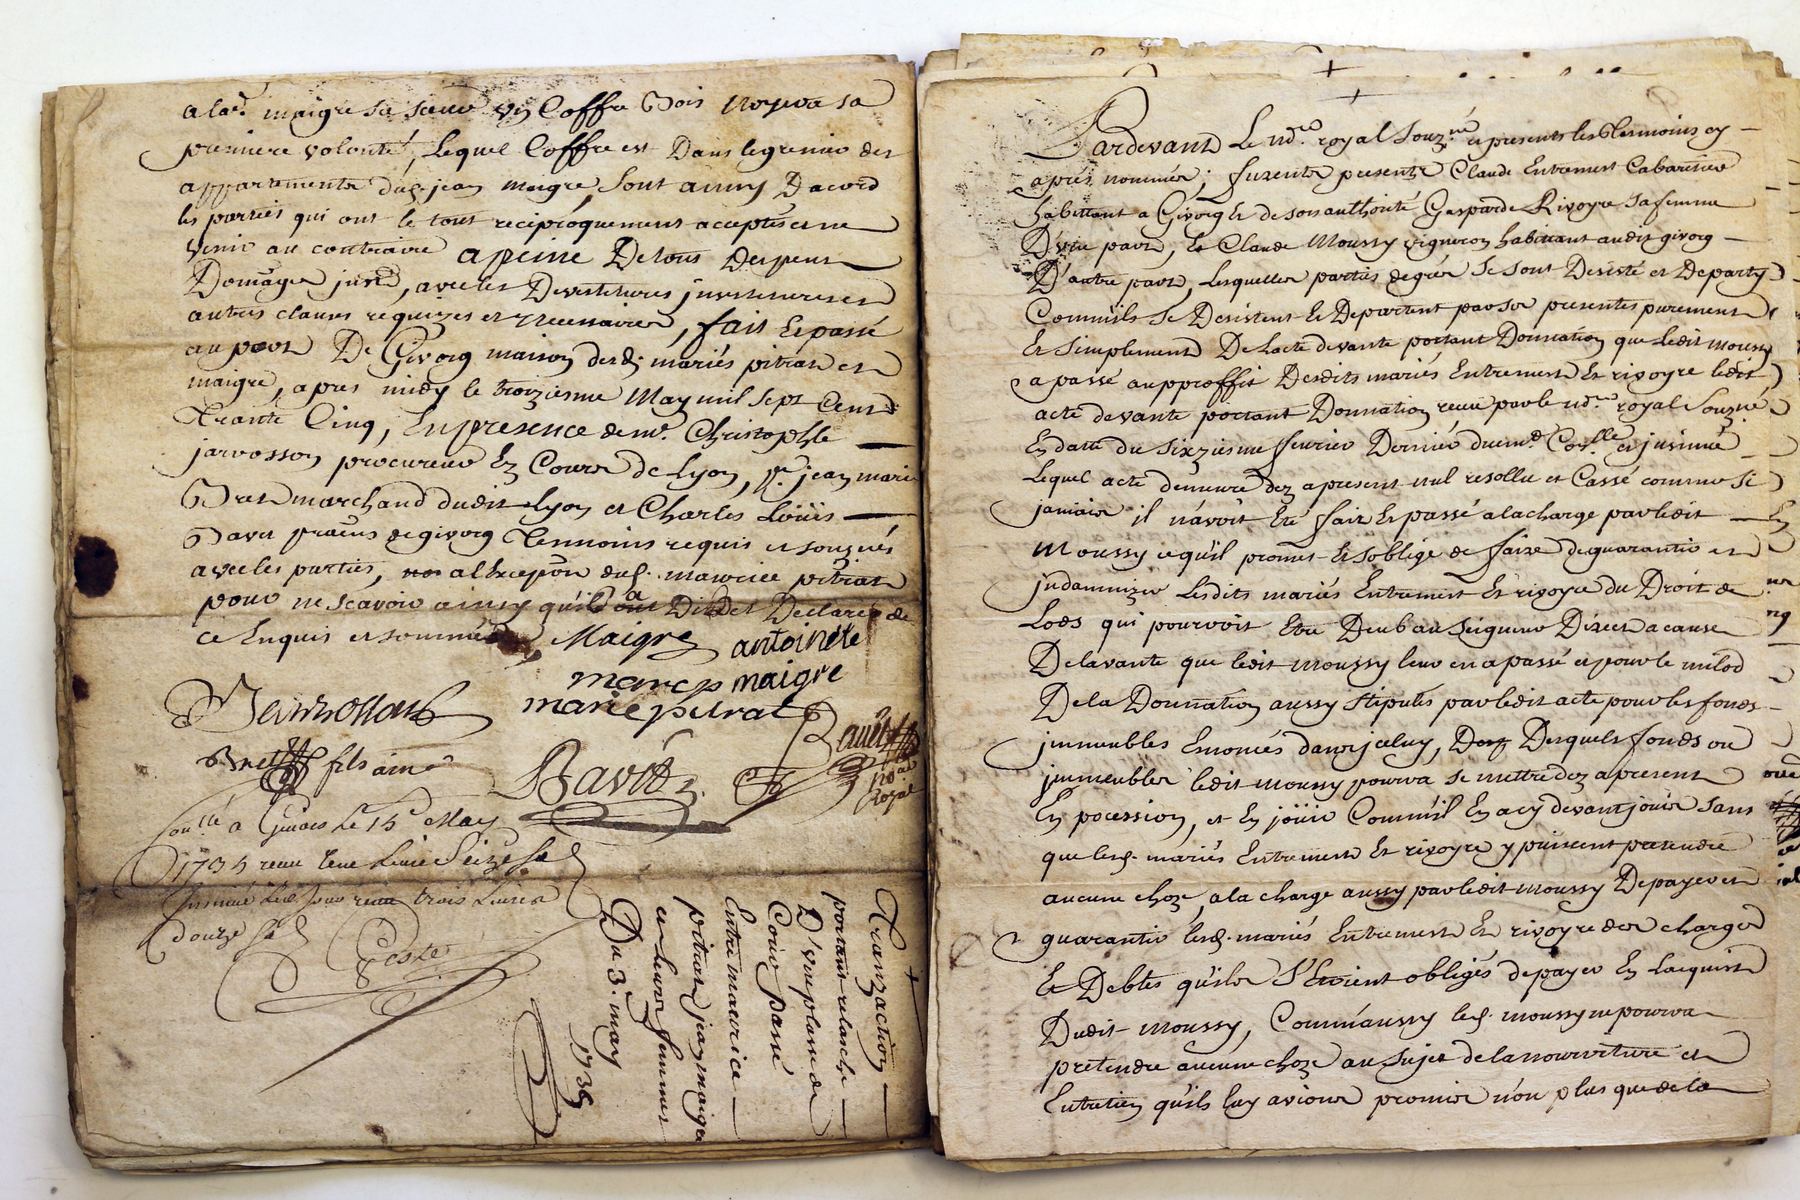 a lad. maigre sa sœur un Coffre Bois noyer a sa
premiere volonté, Lequel Coffre est Dans le grenier des
appartements dud. jean maigre, sont ainsy Dacord
les parties qui ont le tout reciproquement accepté et ne
venir au contraire a peine De tous Despens
Domages jnts, avec les Devestitures jnvestitures et
autres clauses requizes et necessaires, fait Et passé
au port De Givorg maison desd. mariés pitrat et
maigre, apres midy le troizieme May mil sept Cent
Trante Cinq, En presence de me. Christophle
jarrosson procureur Ez Cours de Lyon, sr. jean marie
Bret marchand dudit Lyon et Charles Loüis
Bavet pratics de givorg Temoins requis et souznés
avec les parties, a lExcepon dud. maurice pitrat
pour ne scavoir ainsy quil a Dit Et Declaré de
ce Enquis et sommé Maigre antoinete
marcp maigre
marie pitrat
Jarrosson
Bret fils ainé
Bavet
Bavet
no.al
Royal
Con.llé a Givors Le 15e May
1735 reçu Seize s
jnsinué led. jour reçu trois Livres
douze s
Coste
Tranzaction
portant relasche
D'une plasse de
Cour passé
Entre maurice
pitrat jean maigre
et Leurs femmes
Du 3. may
1735
Pardevant Le nore. royal Souzné. et presents les Temoins cy
aprés nommés; furent presents Claude Entremont Cabaretier
habittant a Givorg Et de son authorité Gasparde Rivoyre sa femme
D'une part, Et Claude Moussy vigneron habittant audit givorg
D'autre part, Lesquelles parties de gré se sont Desisté et Departy
Comm'ils se Desistent Et Departent par ses presentes purement
Et simplement De Lacte de vante portant Donnation que ledit moussy
a passé au proffit Desdits mariés Entremont Et rivoyre ledit
acte de vante portant Donnation reçu par le nore. royal Souzné
En datte du Sixzieme fevrier Dernier duem.t Con.llé et jnsinué
Lequel acte demeure dez a present nul resollu et Cassé comme si
jamais il n'avoit Eté fait Et passé a la charge par ledit
Moussy ce qu'il promet Et s'oblige de faire de guarantir et
jndamnizer Lesdits mariés Entremont Et rivoyre du Droit de
Lods qui pourroit Etre Deub au Seigneur Direct a cause
De la vante que ledit moussy leur en a passé et pour le milod
De la Donnation aussy stipulés par ledit acte pour les fonds
jmmeubles Ennoncés dans jceluy, Desquels fonds ou
jmmeubles ledit moussy pourra se mettre dez a present
En pocession, et En joüir Comm'il En a cy devant jouis sans
que lesd. mariés Entremont Et rivoyre y puissent pretendre
aucune choze, a la charge aussy par ledit moussy De payer et
guarantir lesd. mariés Entremont Et rivoyre des charges
Et Debtes qu'ils s'Etoient obligés de payer En Lacquit
Dudit moussy, Comm'aussy led. moussy ne pourra
pretendre aucune choze au sujet de la nourriture et
Entretien qu'ils luy avions promis n'on plus que de la